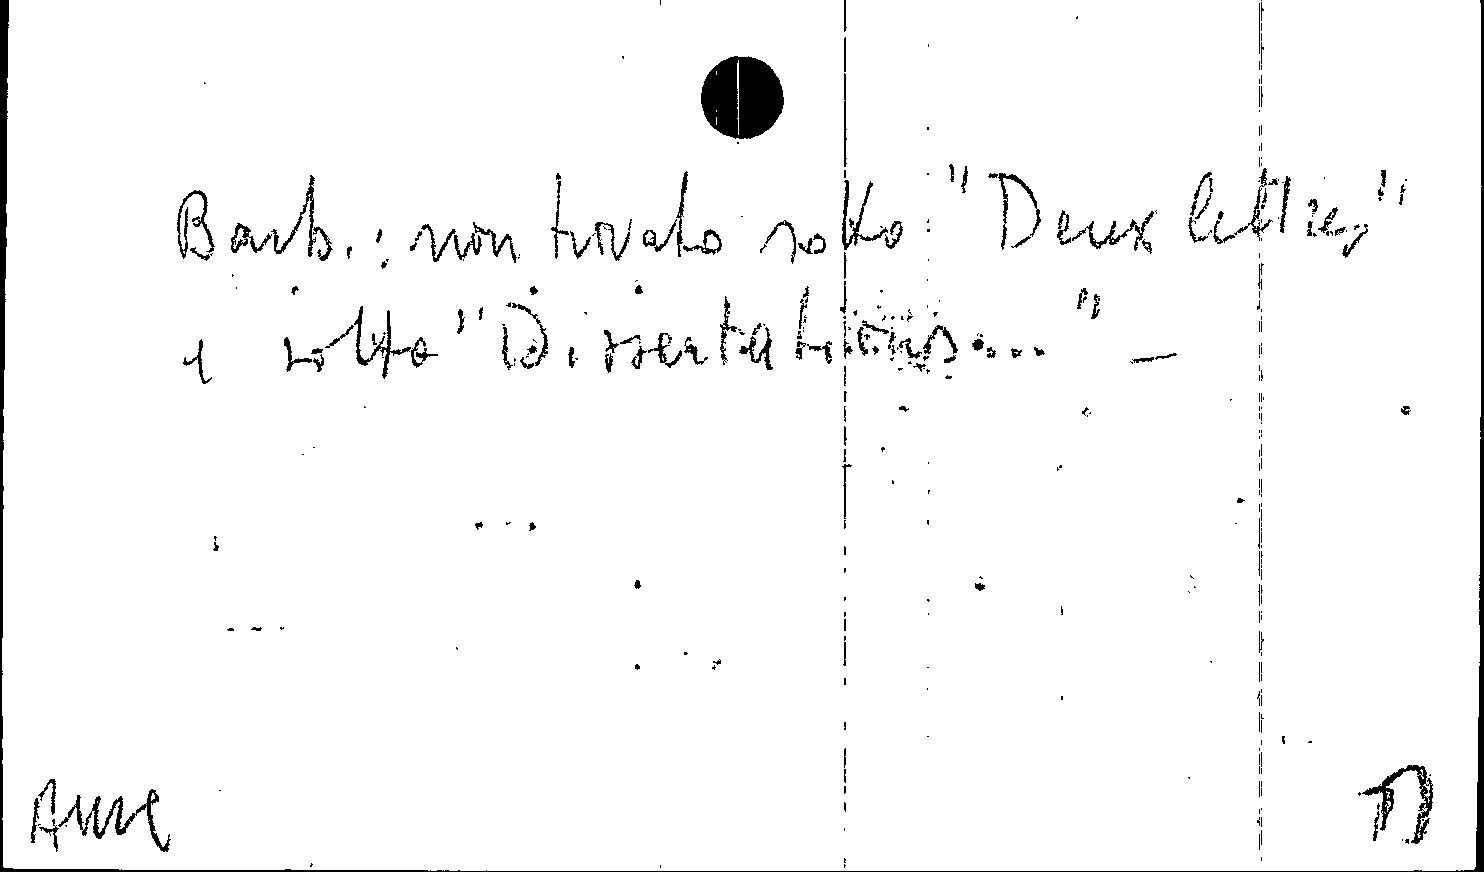 Barb.: non trovato sotto "Deux lettres"
e sotto "Dissertations..." —